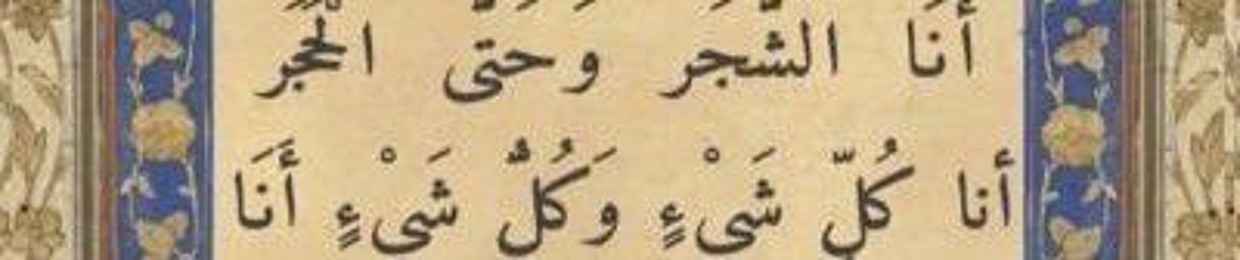 أَنَا الشَّجَر وَحَتَّى الْحَجَر
أنا كُلّ شَيْءٍ وَكُلُّ شَيْءٍ أَنَا